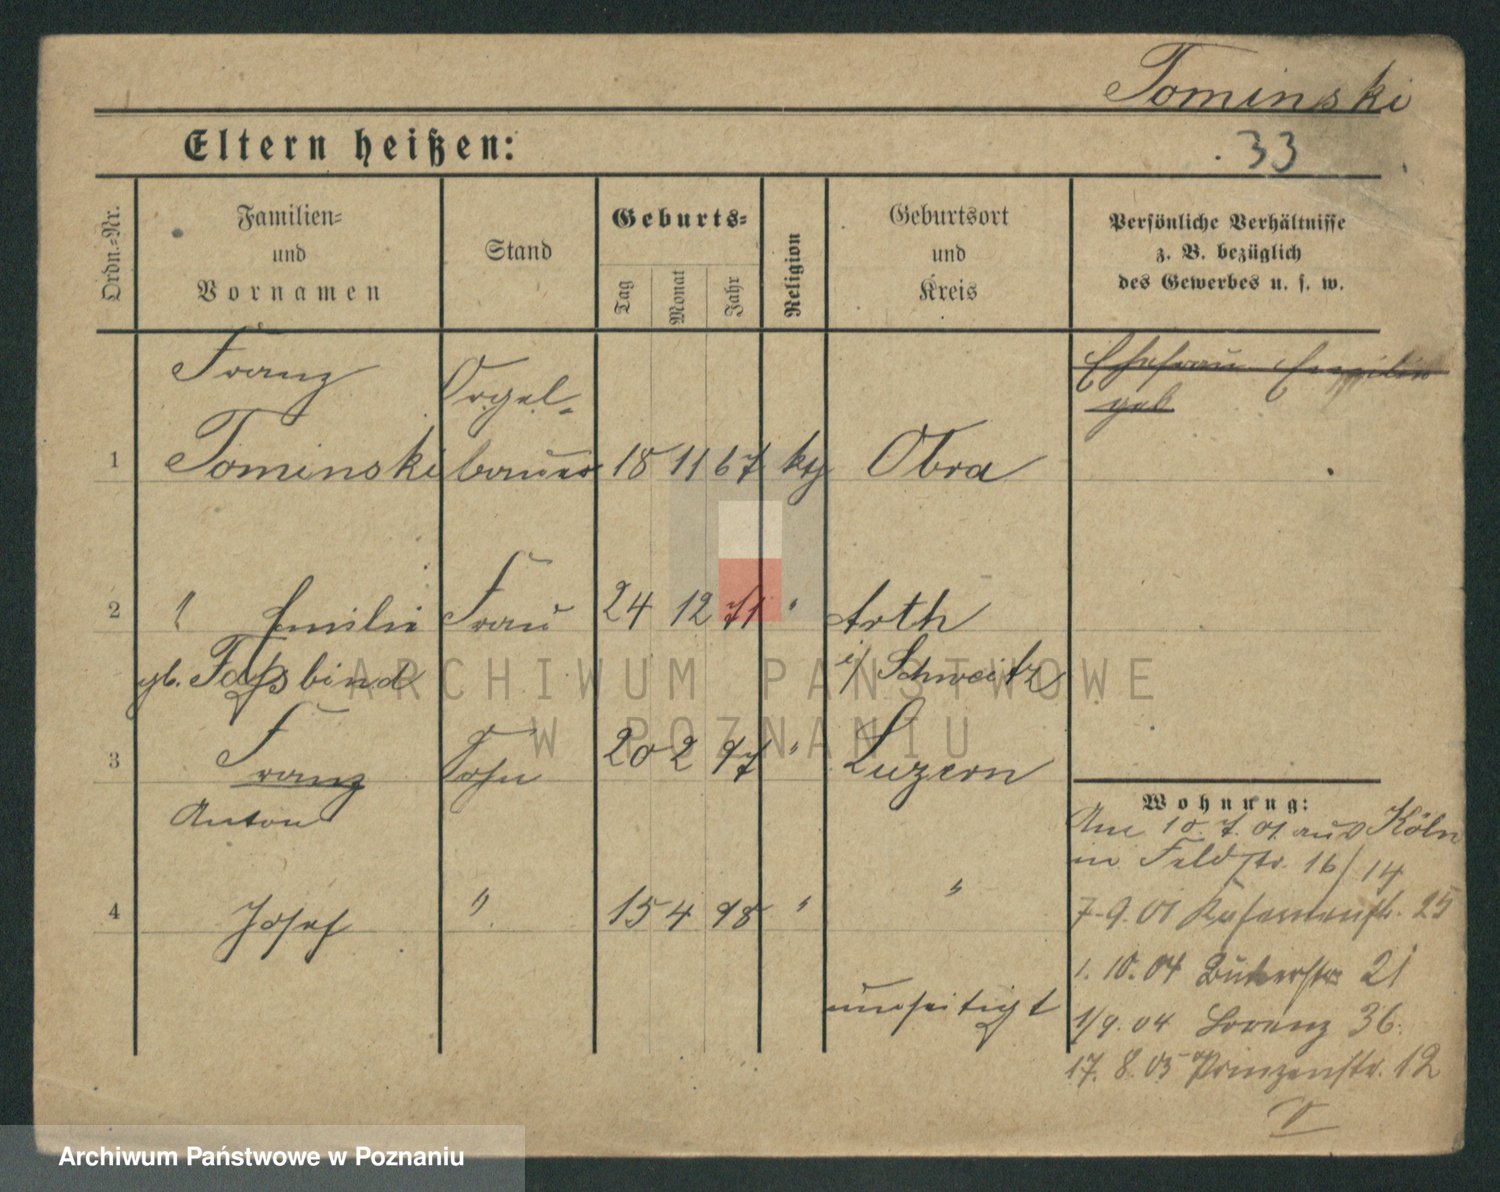 Tominski
Eltern heißen:
33
Ordn.=Nr.
Familien=
und
Vornamen
Stand
Geburts=
Tag
Monat
Jahr
Religion
Geburtsort
und
Kreis
Persönliche Verhältnisse
z. B. bezüglich
des Gewerbes u. s. w.
Franz
Orgel-
Ehefrau Emilie
geb
1 Tominski bauer 18 11 67 kth Obra
2 " Emilie Frau 24 12 71 " Arth
gb. Fassbind i/ Schweitz
3 Franz Sohn 20 2 97 " Luzern
Anton
4 Josef " 15 4 98 " "
Wohnung:
Am 10.7.01 aus Köln
in Feldstr. 16/14
7-9.01 25
1.10.04 21
1/9.04 Lorenz 36.
17.8.05 Prinzenstr. 12
ARCHIWUM PAŃSTWOWE
W POZNANIU
Archiwum Państwowe w Poznaniu